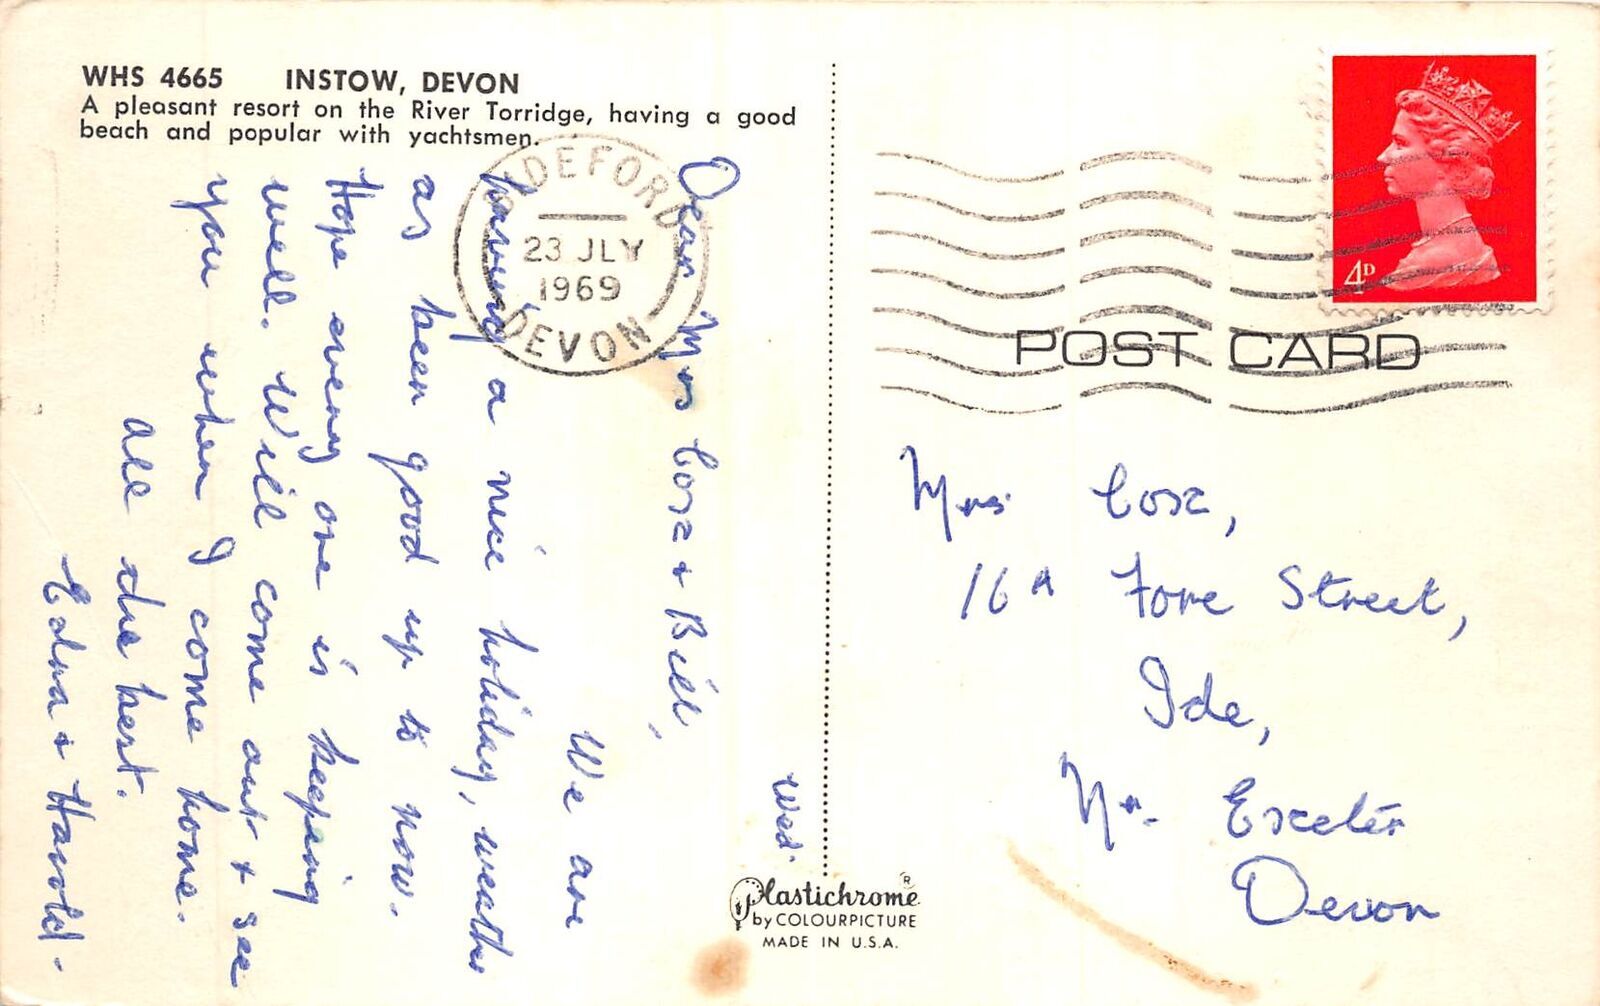 WHS 4665 INSTOW, DEVON
A pleasant resort on the River Torridge, having a good
beach and popular with yachtsmen.
BIDEFORD
23 JLY
1969
DEVON
4D
POST CARD
Wed.
Dear Mrs Cox + Bill,
We are
having a nice holiday, weather
as been good up to now.
Hope every one is keeping
well. Will come out + see
you when I come home.
All the best.
Edna + Harold.
Mrs Cox,
16A Fore Street,
Ide,
Nr. Exeter
Devon
Plastichrome R
by COLOURPICTURE
MADE IN U.S.A.